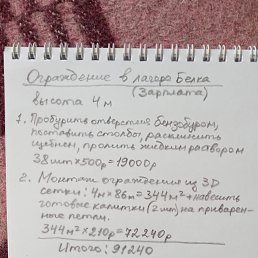 Ограждение в лагере Белка
высота 4 м (Зарплата)
1. Пробурить отверстия бензобуром,
поставить столбы, расклинить
щебнем, пролить жидким раствором
38 шт × 500р = 19000р
2. Монтаж ограждения из 3D
сетки: 4м × 86м = 344 м² + навесить
готовые калитки (2 шт) на приварен-
ные петли.
344 м² × 210р = 72240р
Итого: 91240